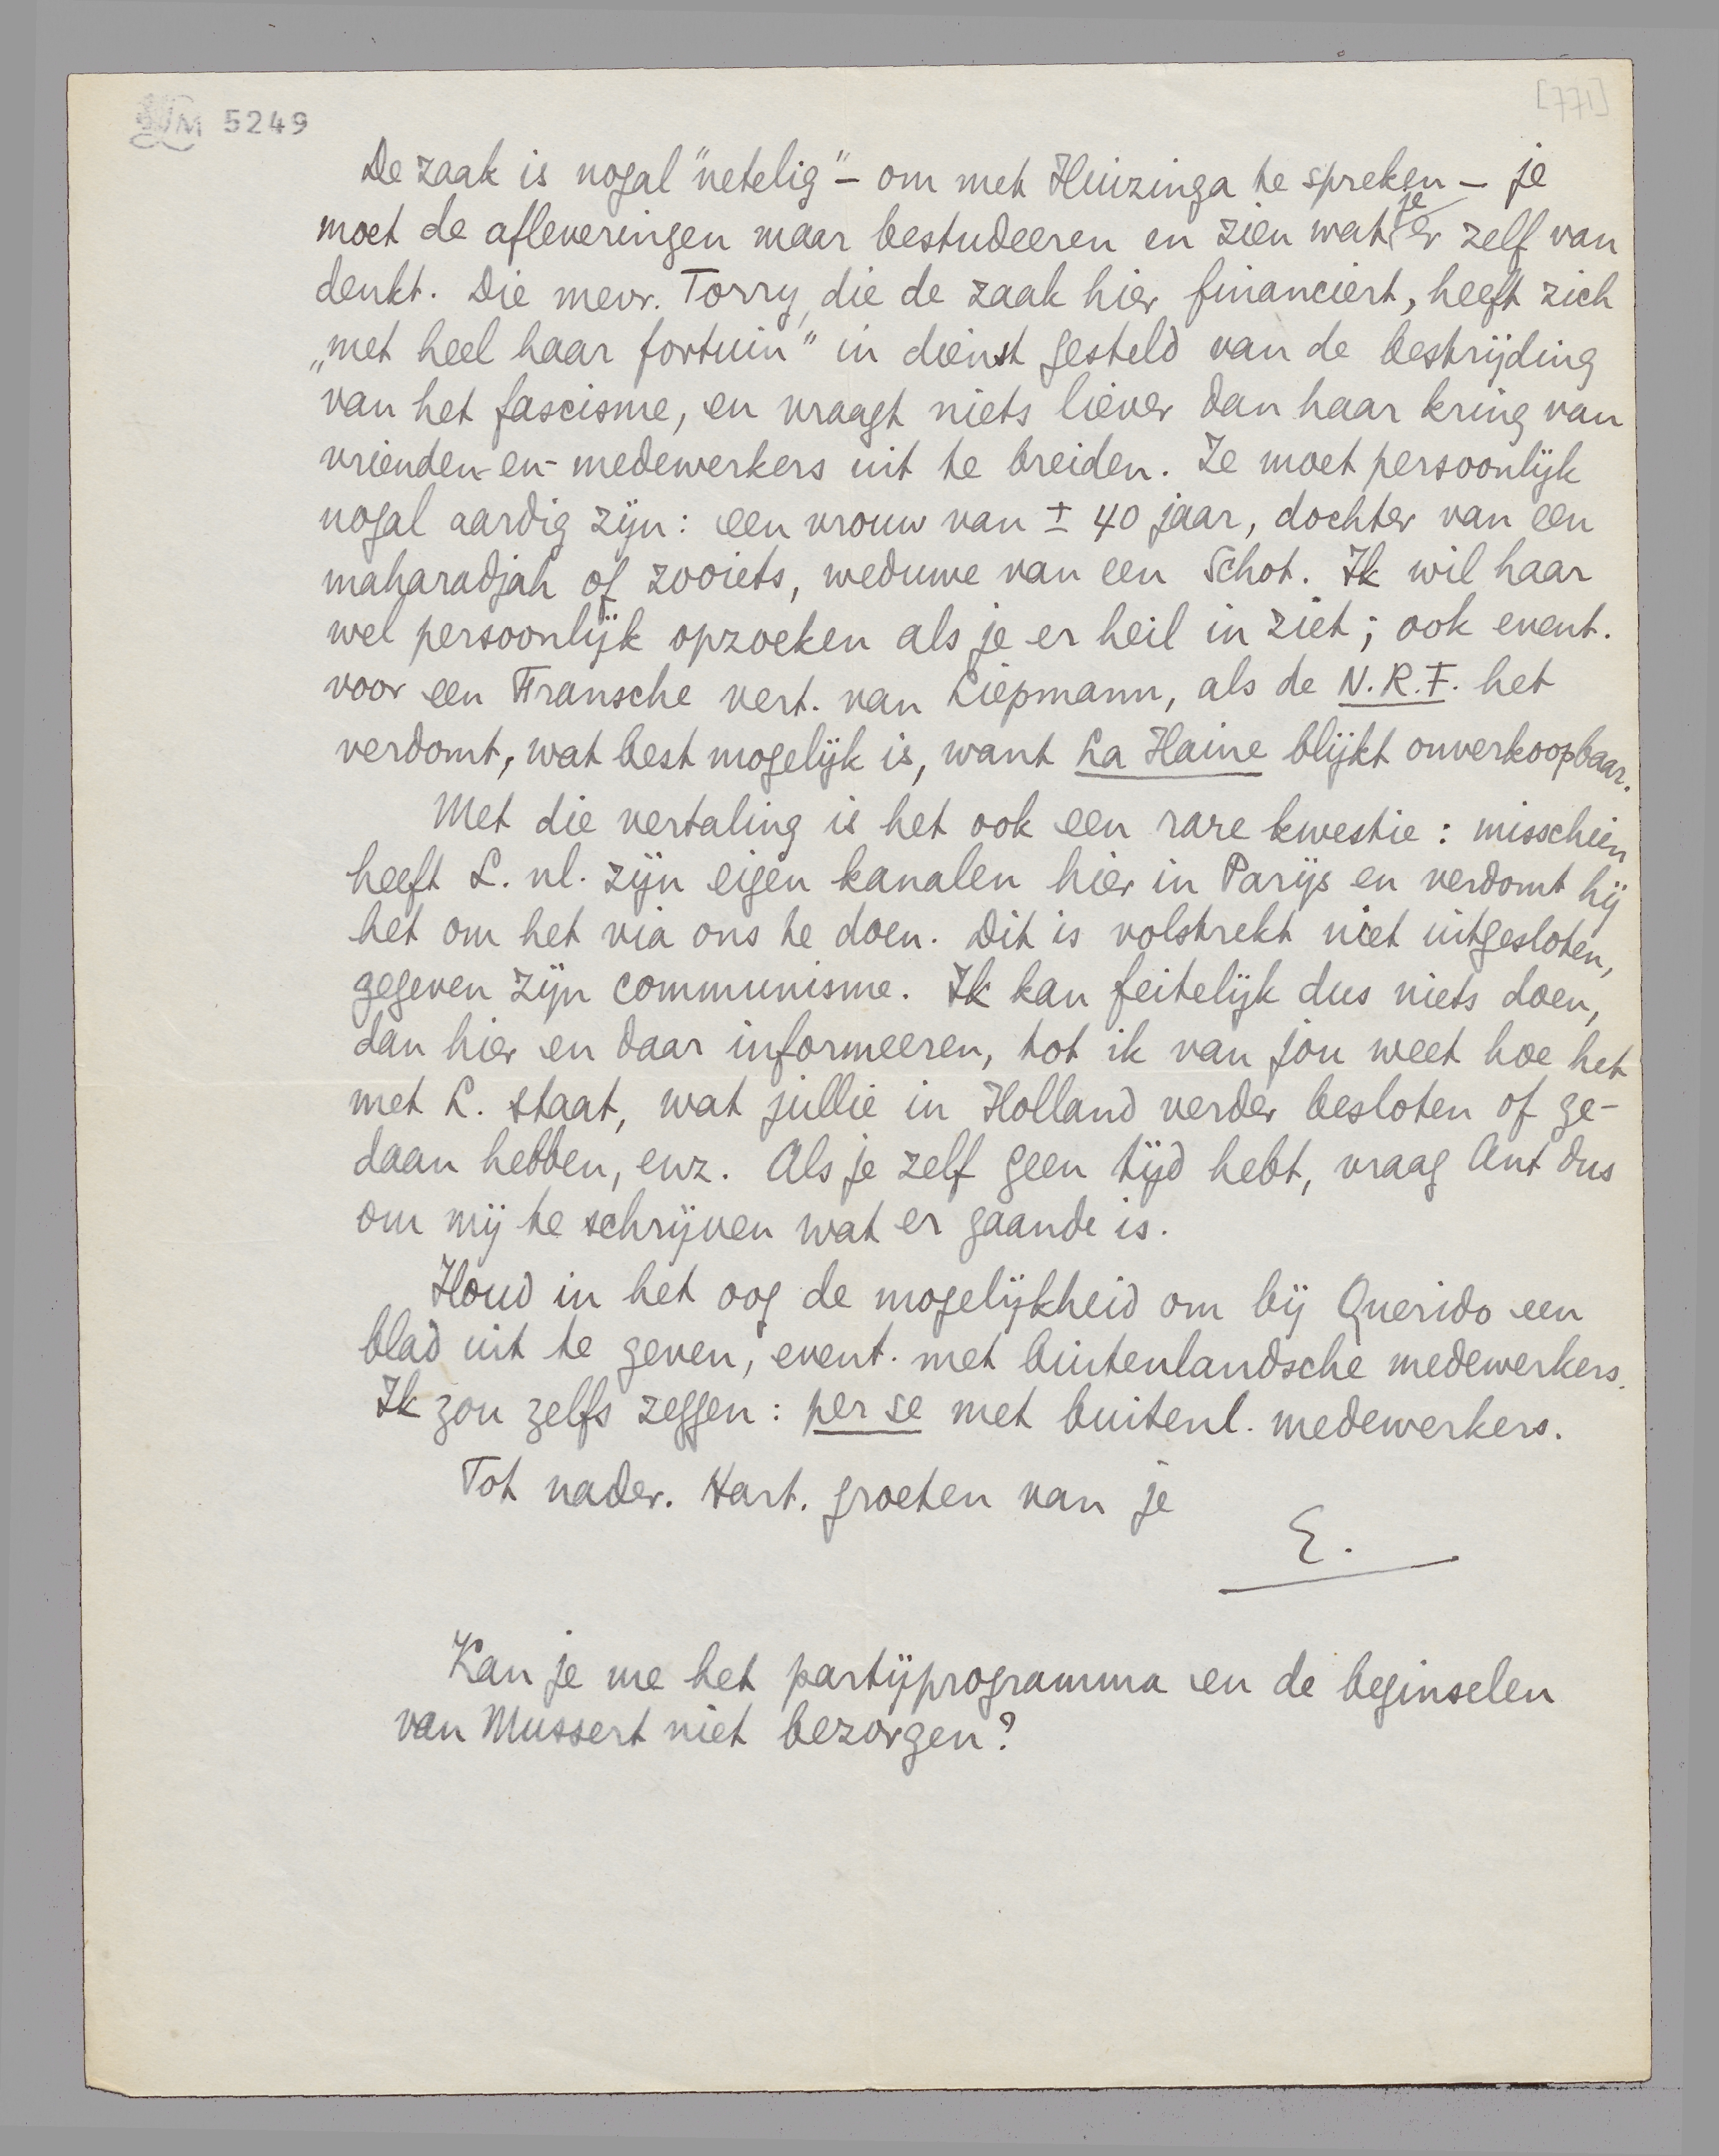 LM 5249
[771]
De zaak is nogal "netelig" – om met Huizinga te spreken – je
moet de afleveringen maar bestudeeren en zien wat je er zelf van
denkt. Die mevr. Torry, die de zaak hier financiert, heeft zich
„met heel haar fortuin" in dienst gesteld van de bestrijding
van het fascisme, en vraagt niets liever dan haar kring van
vrienden-en-medewerkers uit te breiden. Ze moet persoonlijk
nogal aardig zijn: een vrouw van ± 40 jaar, dochter van een
maharadjah of zooiets, weduwe van een Schot. Ik wil haar
wel persoonlijk opzoeken als je er heil in ziet; ook event.
voor een Fransche vert. van Liepmann, als de N.R.F. het
verdomt, wat best mogelijk is, want La Haine blijkt onverkoopbaar.
Met die vertaling is het ook een rare kwestie: misschien
heeft L. nl. zijn eigen kanalen hier in Parijs en verdomt hij
het om het via ons te doen. Dit is volstrekt niet uitgesloten,
gegeven zijn communisme. Ik kan feitelijk dus niets doen,
dan hier en daar informeeren, tot ik van jou weet hoe het
met L. staat, wat jullie in Holland verder besloten of ge-
daan hebben, enz. Als je zelf geen tijd hebt, vraag Ant dus
om mij te schrijven wat er gaande is.
Houd in het oog de mogelijkheid om bij Querido een
blad uit te geven, event. met buitenlandsche medewerkers.
Ik zou zelfs zeggen: per se met buitenl. medewerkers.
Tot nader. Hart. groeten van je
E.
Kan je me het partijprogramma en de beginselen
van Mussert niet bezorgen?